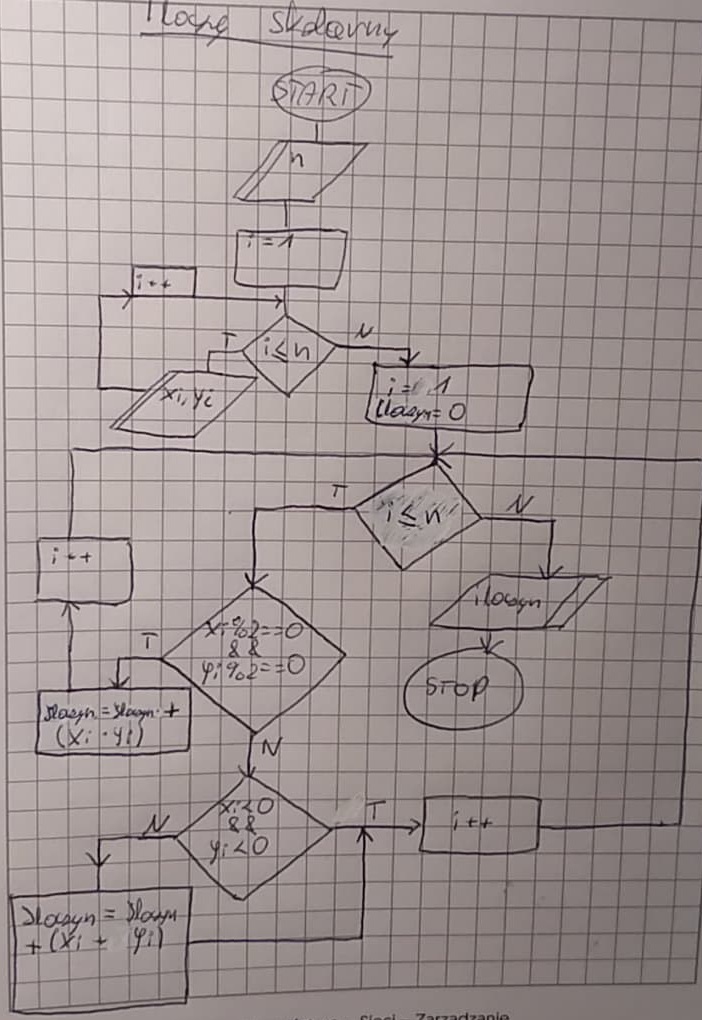 Iloczy skalarny
START
n
i = 1
i++
T
i ≤ n
N
xi, yi
i = 1
iloczyn = 0
T
i ≤ n
N
i++
iloczyn
xi%2==0
&&
yi%2==0
T
STOP
iloczyn = iloczyn +
(xi · yi)
N
xi<0
&&
yi<0
N
T
i++
iloczyn = iloczyn
+ (xi + yi)
Sieci – Zarządzanie